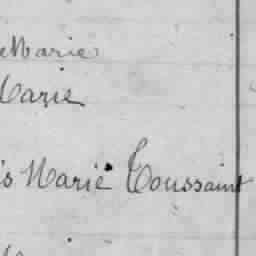 eMarie
Marie
is Marie Toussaint